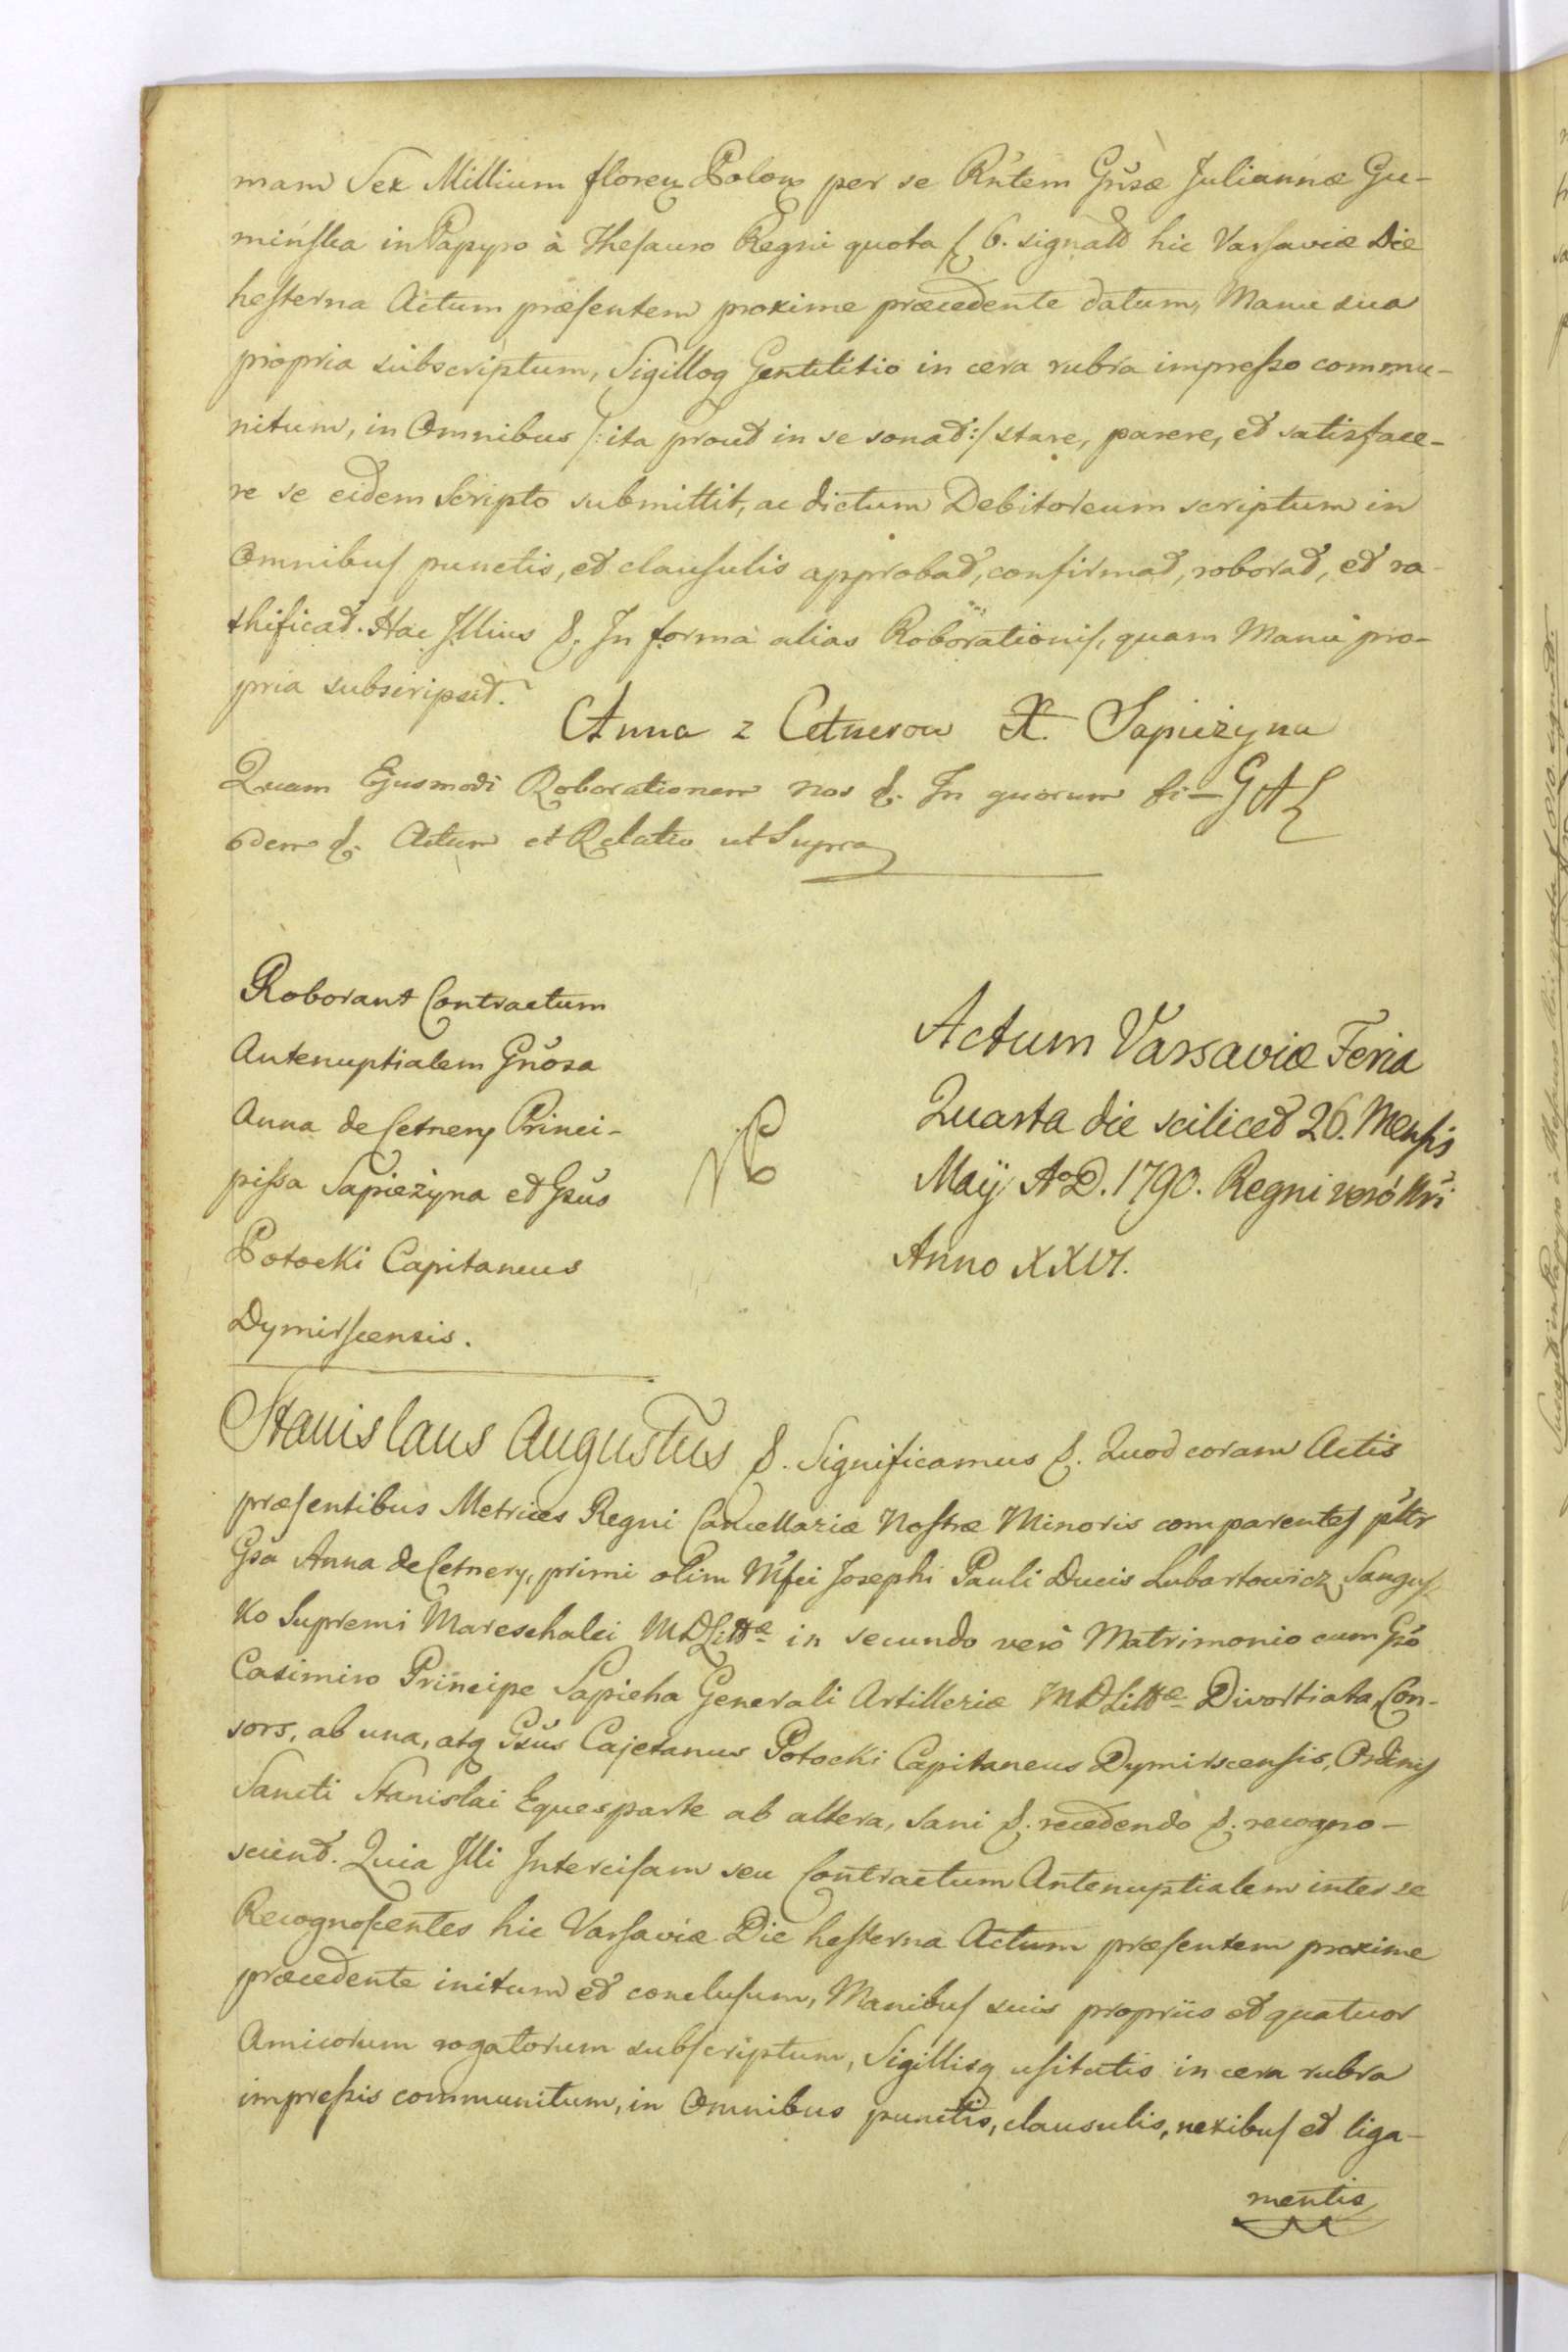 mam Sex Millium floren Polon per se Rñtem Gñsæ Juliannæ Gu-
mińska in Papyro à Thesauro Regni quota f 6. signato hic Varsaviæ Die
hesterna Actum præsentem proxime præcedente datum, Manu sua
propria subscriptum, Sigilloq Gentilitio in cera rubra impresso commu-
nitum, in Omnibus /: ita prout in se sonat :/ stare, parere, et satisface-
re se eidem Scripto submittit, ac dictum Debitoreum scriptum in
Omnibus punctis, et clausulis approbat, confirmat, roborat, et ra-
thificat. Hac Illius &. In forma alias Roborationis, quam Manu pro-
pria subscripsit.
Anna z Cetnerow X. Sapieżyna
Quam Ejusmodi Roborationem nos &. In quorum fi-
dem &. Actum et Relatio ut Supra
Roborant Contractum
Antenuptialem Gñosa
Anna de Cetnery Princi-
pissa Sapieżyna et Gsus
Potocki Capitaneus
Dymirscensis.
Actum Varsaviæ Feria
Quarta die scilicet 26. Mensis
Maij Ao D. 1790. Regni veró Nri
Anno XXVI.
Stanislaus Augustus &. Significamus &. Quod coram Actis
præsentibus Metrices Regni Cancellariæ Nostræ Minoris comparentes pltr
Gsa Anna de Cetnery, primi olim Mfci Josephi Pauli Ducis Lubartowicz Sangus-
ko Supremi Mareschalci MDLittæ in secundo veró Matrimonio cum Gso
Casimiro Principe Sapieha Generali Artilleriæ MDLittæ Divortiata Con-
sors, ab una, atq Gsus Cajetanus Potocki Capitaneus Dymirscensis, Ordinis
Sancti Stanislai Eques parte ab altera, sani &. recedendo &. recogno-
scunt. Quia Illi Intercisam seu Contractum Antenuptialem inter se
Recognoscentes hic Varsaviæ Die hesterna Actum præsentem proxime
præcedente initum et conclusum, Manibus suis propriis et quatuor
Amicorum rogatorum subscriptum, Sigillisq usitatis in cera rubra
impressis communitum, in Omnibus punctis, clausulis, nexibus et liga-
mentis